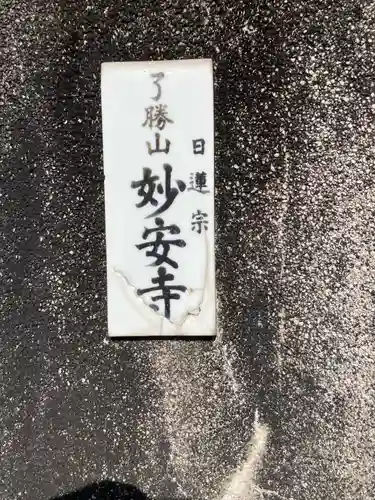 日蓮宗
了勝山
妙安寺